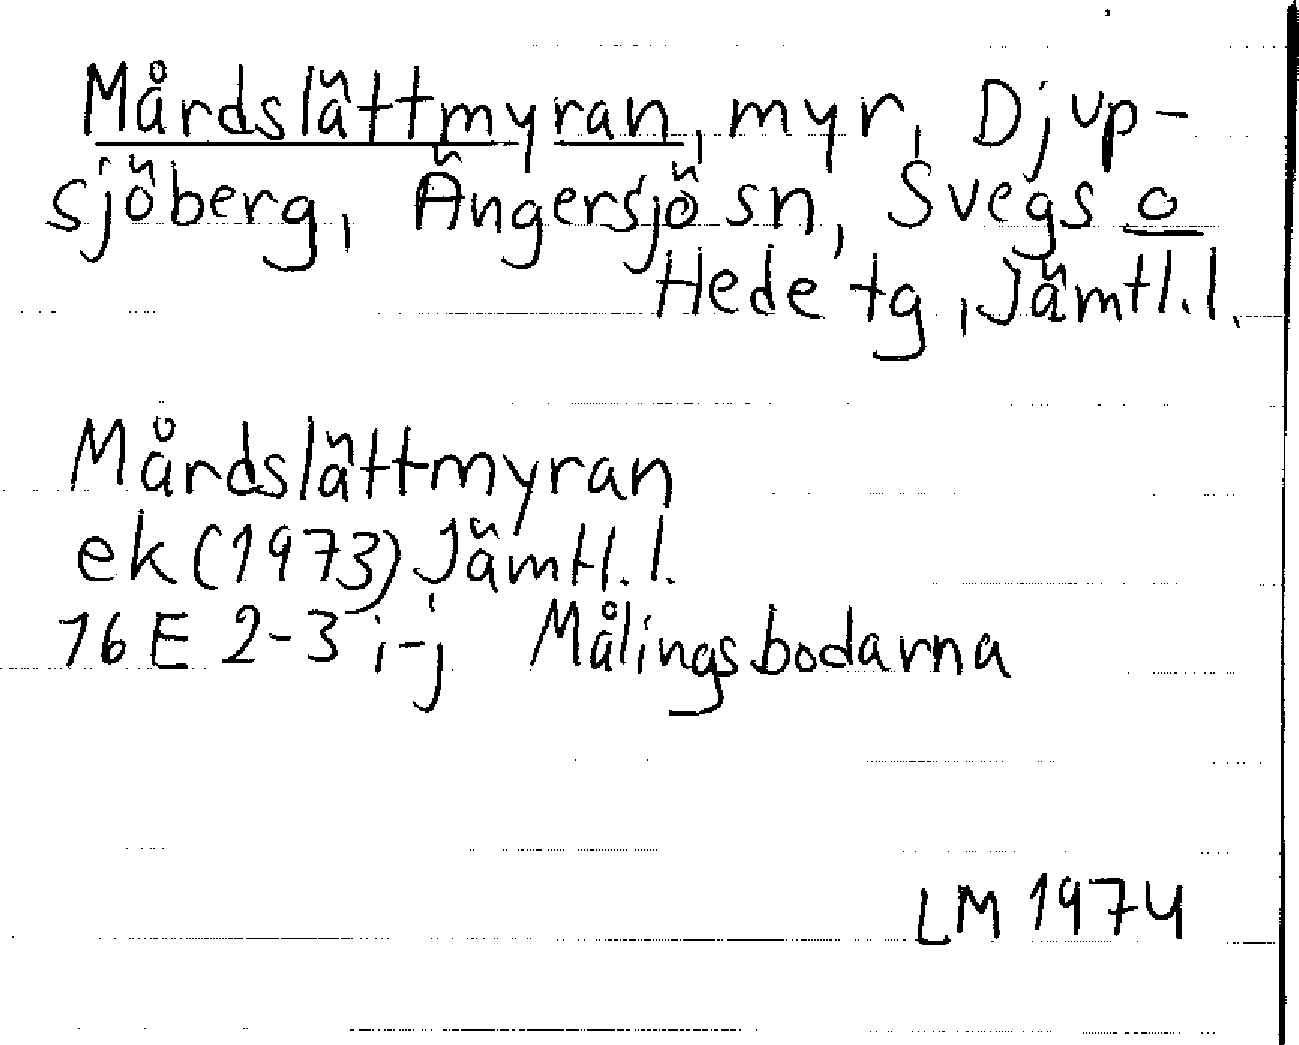 Mårdslättmyran, myr, Djup-
sjöberg, Ängersjö sn, Svegs o
Hede tg, Jämtl. l.
Mårdslättmyran
ek (1973) Jämtl. l.
16 E 2-3 i-j Målingsbodarna
LM 1974